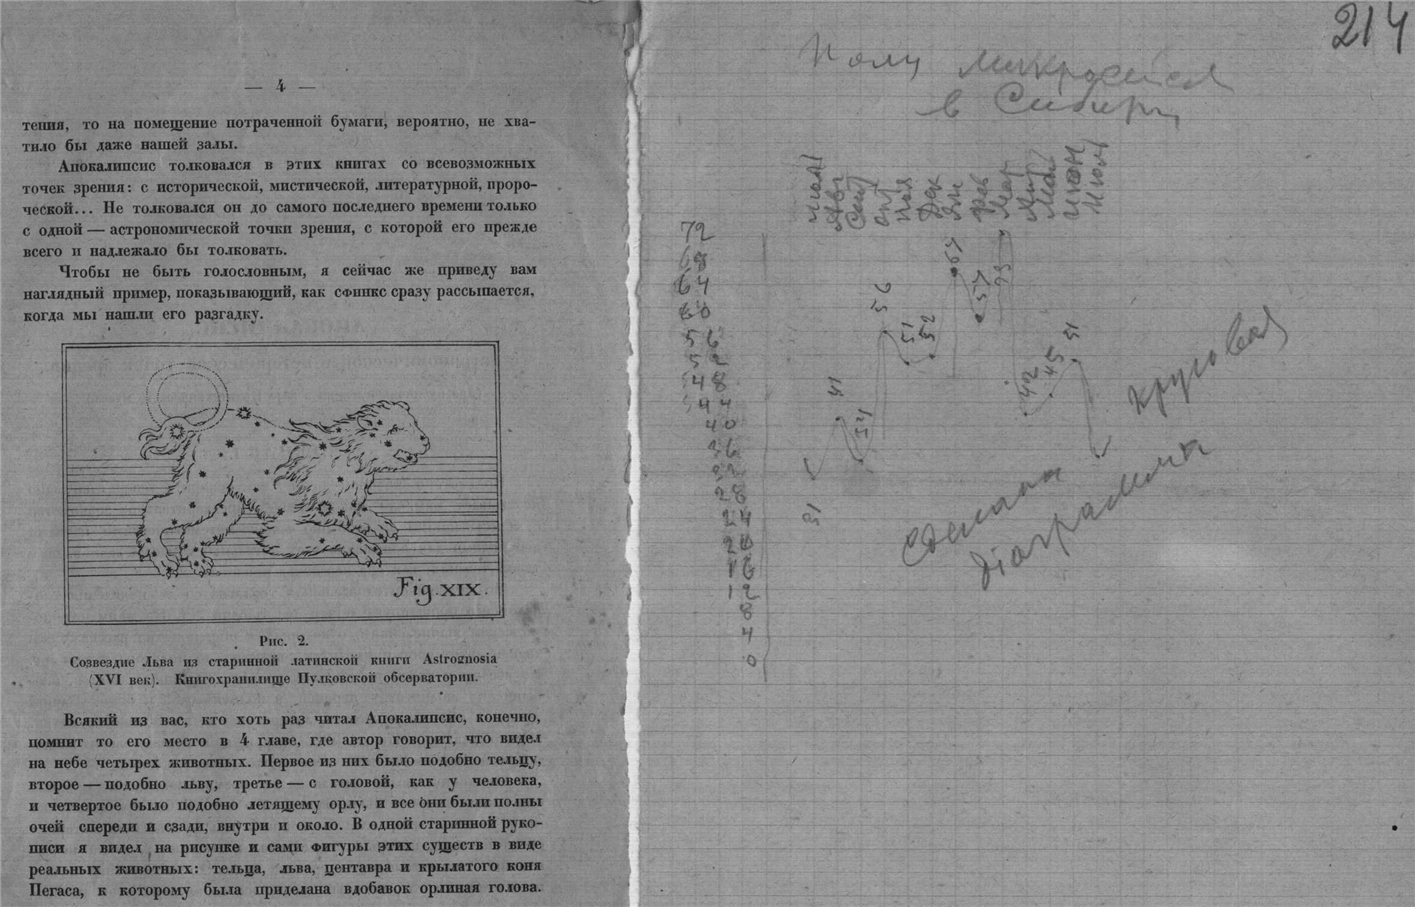 — 4 —
тения, то на помещение потраченной бумаги, вероятно, не хва-
тило бы даже нашей залы.
Апокалипсис толковался в этих книгах со всевозможных
точек зрения: с исторической, мистической, литературной, проро-
ческой... Не толковался он до самого последнего времени только
с одной — астрономической точки зрения, с которой его прежде
всего и надлежало бы толковать.
Чтобы не быть голословным, я сейчас же приведу вам
наглядный пример, показывающий, как сфинкс сразу рассыпается,
когда мы нашли его разгадку.
Fig. XIX.
Рис. 2.
Созвездие Льва из старинной латинской книги Astrognosia
(XVI век). Книгохранилище Пулковской обсерватории.
Всякий из вас, кто хоть раз читал Апокалипсис, конечно,
помнит то его место в 4 главе, где автор говорит, что видел
на небе четырех животных. Первое из них было подобно тельцу,
второе — подобно льву, третье — с головой, как у человека,
и четвертое было подобно летящему орлу, и все они были полны
очей спереди и сзади, внутри и около. В одной старинной руко-
писи я видел на рисунке и сами фигуры этих существ в виде
реальных животных: тельца, льва, центавра и крылатого коня
Пегаса, к которому была приделана вдобавок орлиная голова.
214
в Сибири
Авг
Сент
Окт
Ноя
Дек
Ян
Фев
Мар
Апр
Май
Июн
Июл
72
68
64
60
56
52
48
44
40
36
32
28
24
20
16
12
8
4
0
31
41
34
56
51
52
67
57
73
42
45
51
Сделана круговая
діаграмма